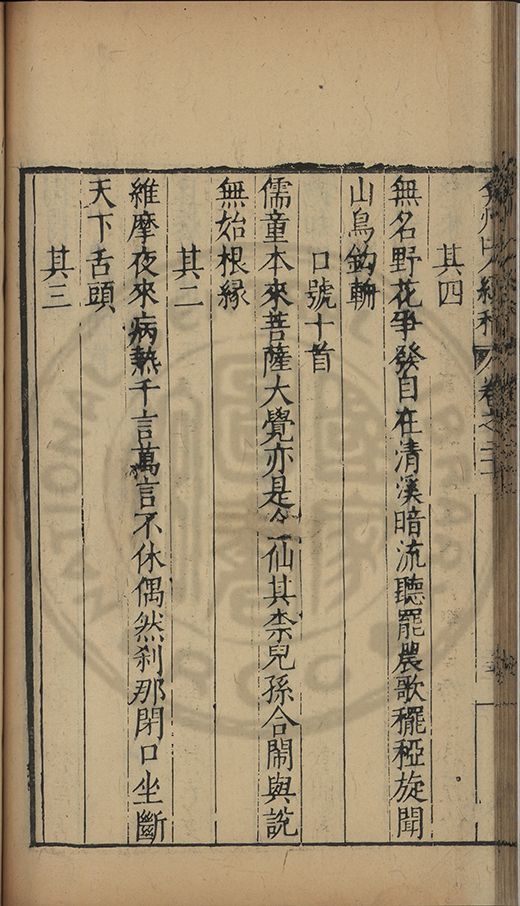 弇州山人續稿 卷之
其四
無名野花爭發自在清溪暗流聽罷農歌穲稏旋聞
山鳥鈎輈
口號十首
儒童本來菩薩大覺亦是金仙其柰兒孫合鬧與說
無始根緣
其二
維摩夜來病熱千言萬言不休偶然刹那閉口坐斷
天下舌頭
其三